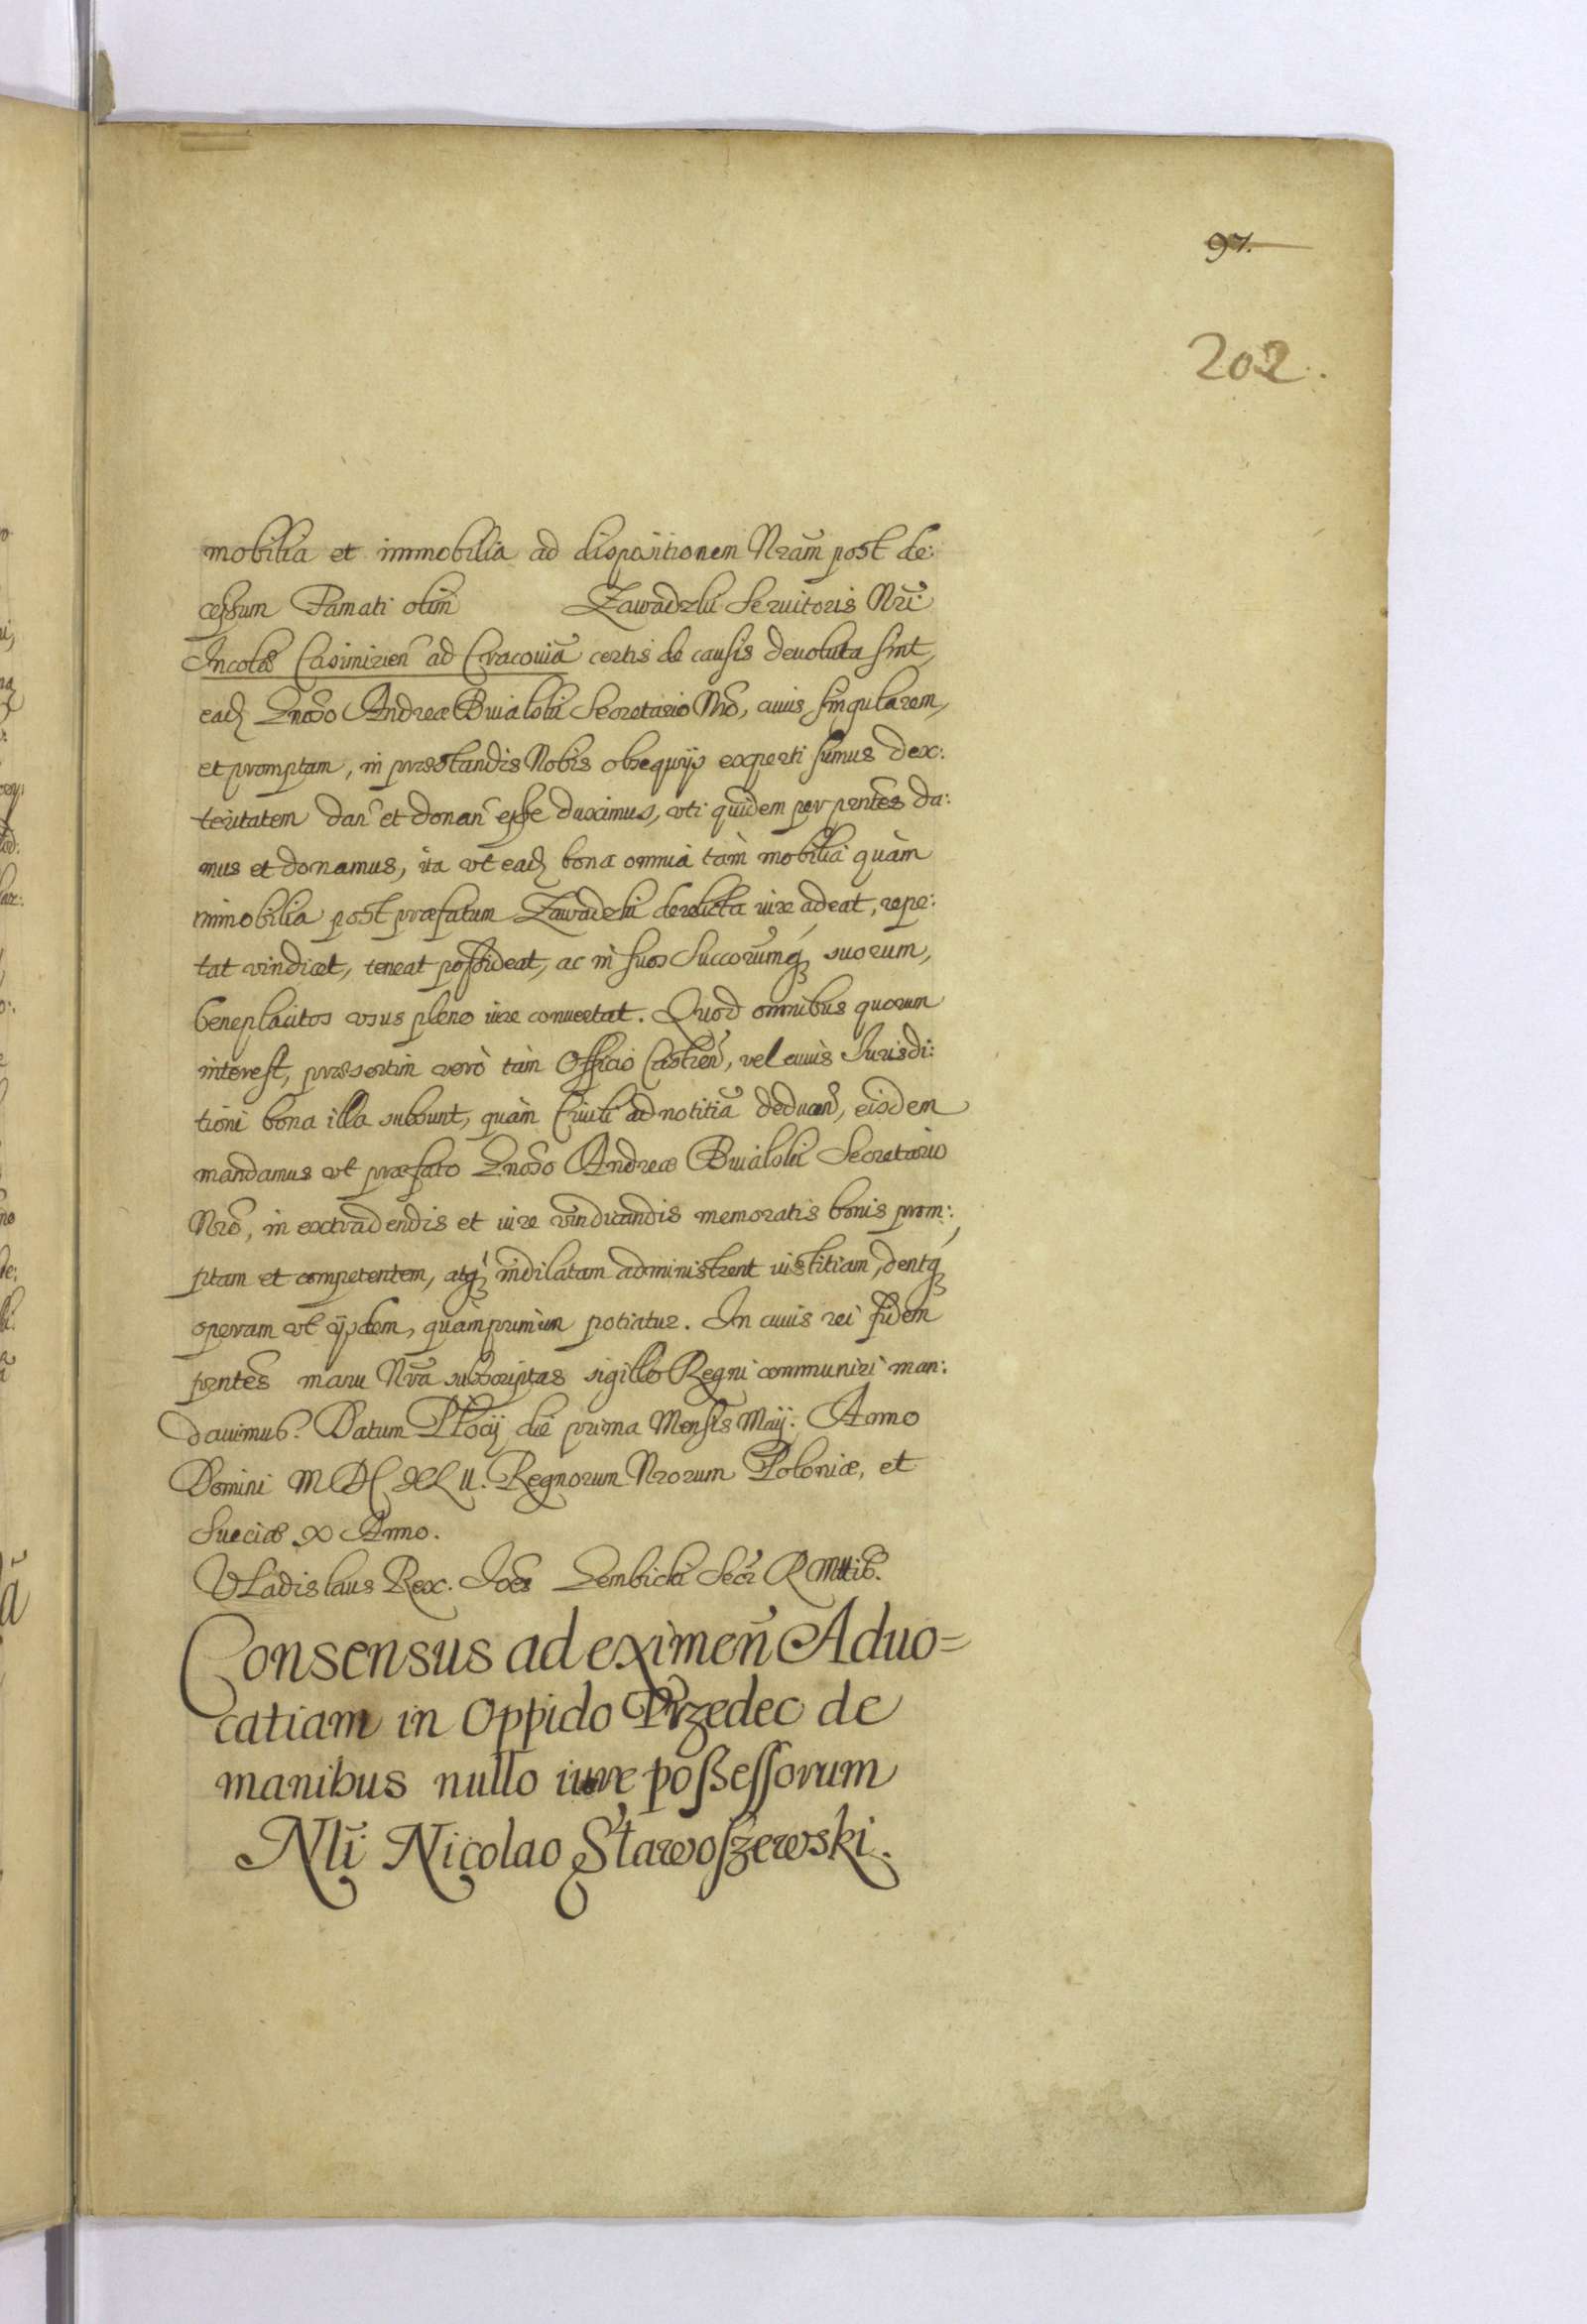 97.
202.
mobilia et immobilia ad dispositionem Nrãm post de:
cessum Famati olim Zawadzki Seruitoris Nri
Incolæ Casimirien̄ ad Cracouiã certis de causis deuoluta sint,
ead. Gnoso Andreæ Buialski Secretario Nrõ, cuius singularem,
et promptam, in præstandis Nobis obsequijs experti sumus dex:
teritatem dan̄ et donan̄ esse duximus, vti quidem per pñtes da:
mus et donamus, ita vt ead. bona omnia tam̀ mobilia quàm
immobilia post præfatum Zawadzki derelicta iure adeat, repe:
tat vindicet, teneat possideat, ac in suos Succorumq́ suorum,
beneplacitos vsus pleno iure conuertat. Quod omnibus quorum
interest, præsertim verò tàm Officio Castren̄, vel cuius Jurisdi:
tioni bona illa subsunt, quàm Ciuili ad notitiã deducen̄, eisdem
mandamus vt præfato Gnoso Andreæ Buialski Secretario
Nrõ, in extradendis et iure vindicandis memoratis bonis prom:
ptam et competentem, atq́ indilatam administrent iustitiam, dentq́
operam vt ijsdem, quàmprimùm potiatur. In cuius rei fidem
pñtes manu Nrã subscriptas sigillo Regni communiri man:
dauimus. Datum Plocij die prima Mensis Maij. Anno
Domini MDCXLII. Regnorum Nrorum Poloniæ, et
Sueciæ X Anno.
Vladislaus Rex. Joes Gembicki Secr R Mttis.
Consensus ad eximen̄ Aduo=
catiam in Oppido Przedec de
manibus nullo iure possessorum
Nli Nicolao Stawoszewski.